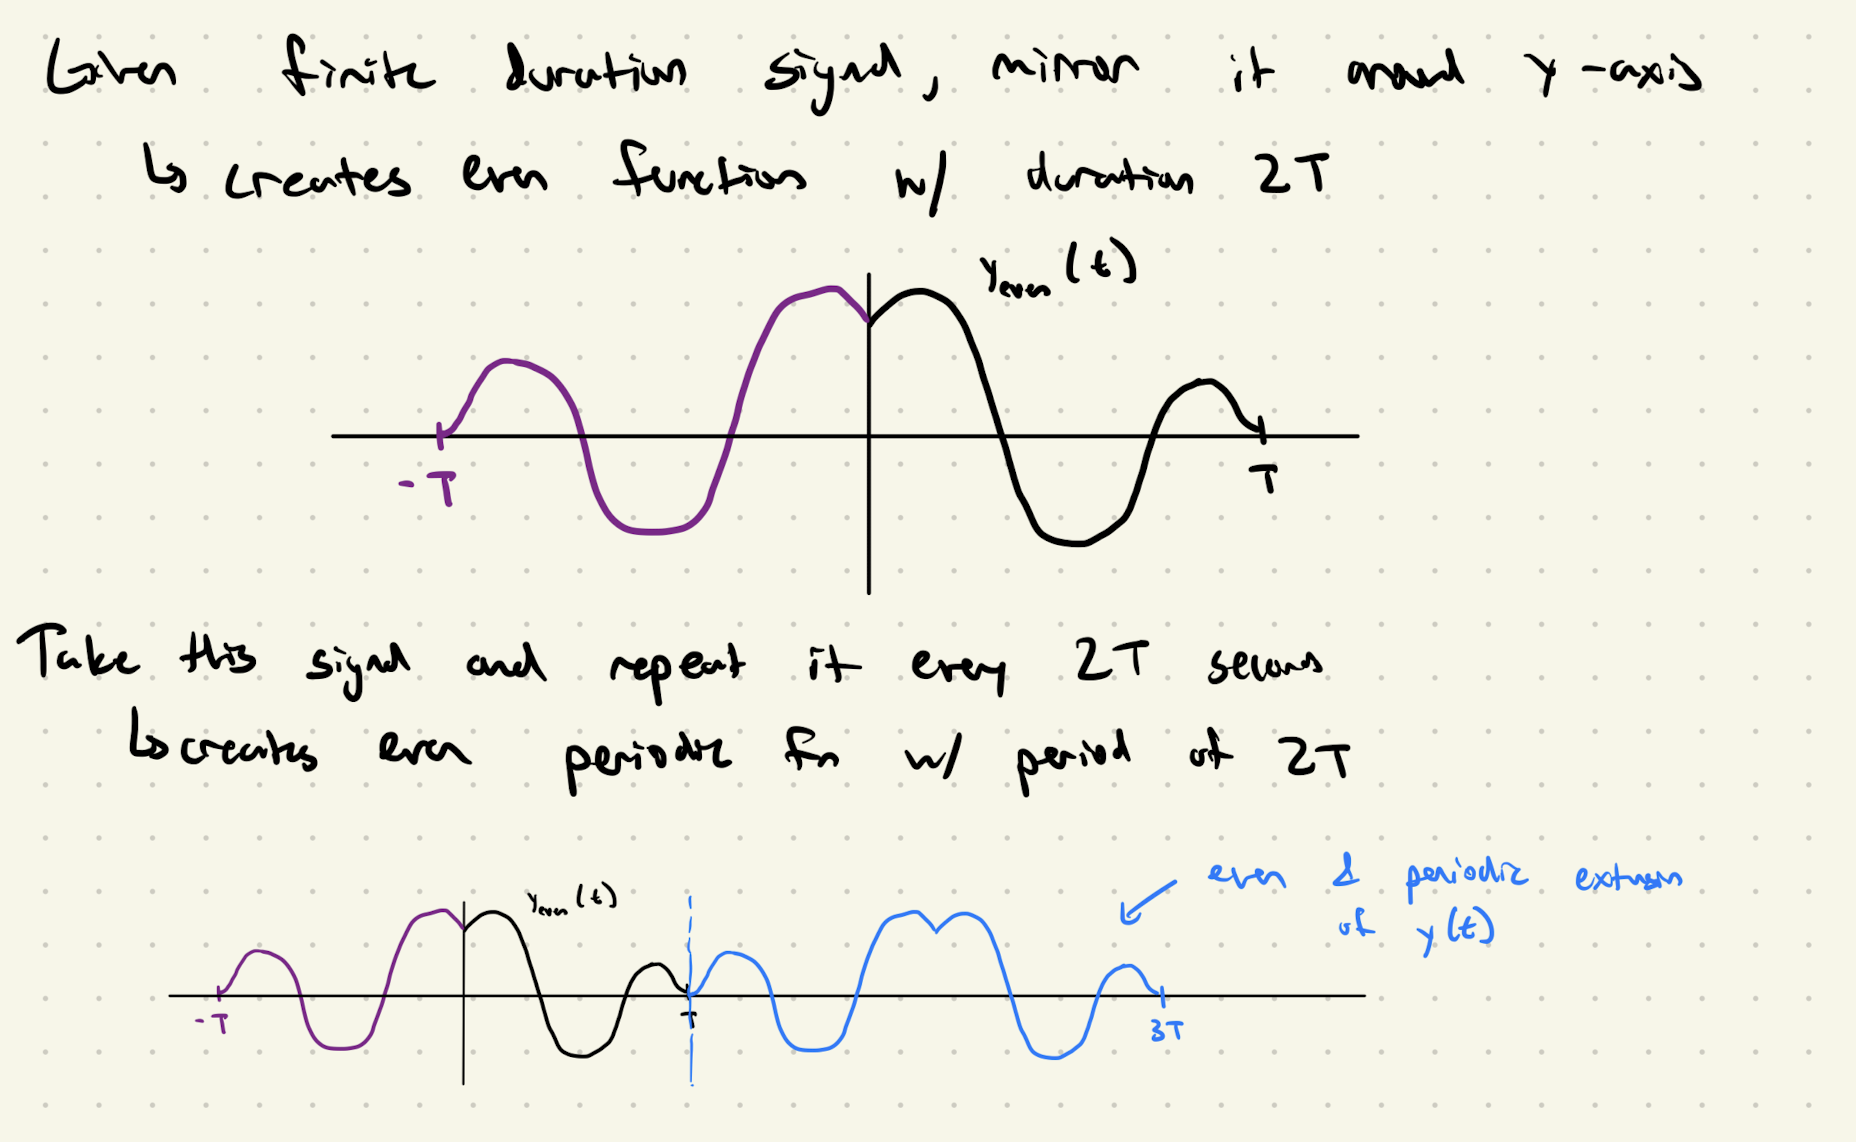 Given finite duration signal, mirror it around y-axis
↳ creates even function w/ duration 2T
y_even (t)
-T
T
Take this signal and repeat it every 2T seconds
↳ creates even periodic fn w/ period of 2T
y_even (t)
even & periodic extension
of y(t)
-T
T
3T